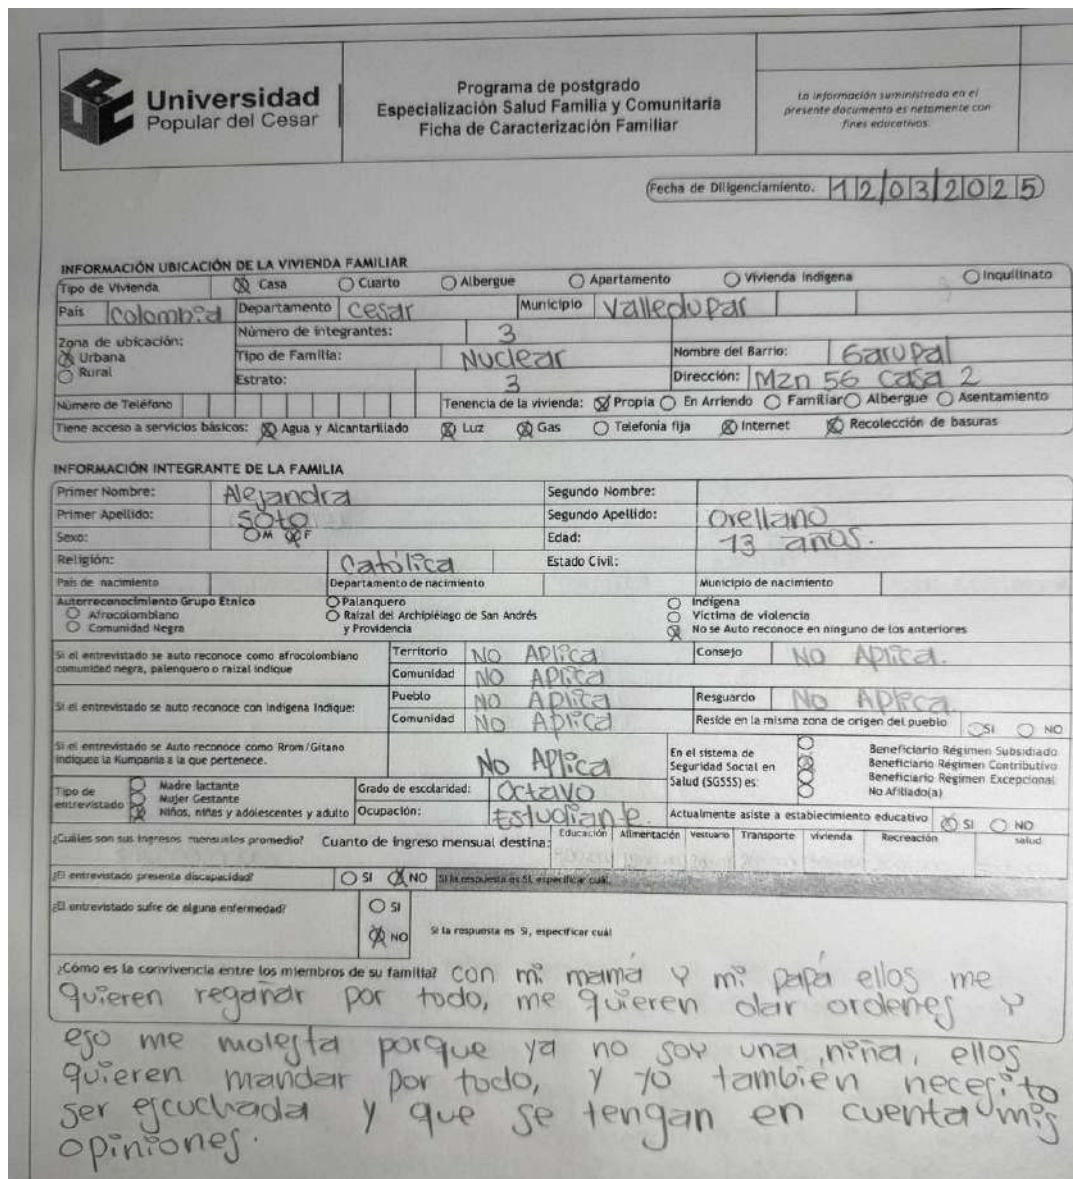 Universidad
Popular del Cesar
Programa de postgrado
Especialización Salud Familia y Comunitaria
Ficha de Caracterización Familiar
La información suministrada en el
presente documento es netamente con
fines educativos.
Fecha de Diligenciamiento. 12/03/2025
INFORMACIÓN UBICACIÓN DE LA VIVIENDA FAMILIAR
Tipo de Vivienda Casa Cuarto Albergue Apartamento Vivienda Indígena Inquilinato
País Colombia Departamento Cesar Municipio Valledupar
Zona de ubicación: Número de integrantes: 3
Urbana Tipo de Familia: Nuclear Nombre del Barrio: Garupal
Rural Estrato: 3 Dirección: Mzn 56 casa 2
Número de Teléfono Tenencia de la vivienda: Propia En Arriendo Familiar Albergue Asentamiento
Tiene acceso a servicios básicos: Agua y Alcantarillado Luz Gas Telefonía fija Internet Recolección de basuras
INFORMACIÓN INTEGRANTE DE LA FAMILIA
Primer Nombre: Alejandra Segundo Nombre:
Primer Apellido: Soto Segundo Apellido: Orellano
Sexo: M F Edad: 13 años.
Religión: Católica Estado Civil:
País de nacimiento Departamento de nacimiento Municipio de nacimiento
Autorreconocimiento Grupo Étnico Palanquero Indígena
Afrocolombiano Raizal del Archipiélago de San Andrés Víctima de violencia
Comunidad Negra y Providencia No se Auto reconoce en ninguno de los anteriores
Si el entrevistado se auto reconoce como afrocolombiano Territorio No Aplica Consejo No Aplica.
comunidad negra, palenquero o raizal indique Comunidad No Aplica
Si el entrevistado se auto reconoce con Indígena Indique: Pueblo No Aplica Resguardo No Aplica
Comunidad No Aplica Reside en la misma zona de origen del pueblo SI NO
Si el entrevistado se Auto reconoce como Rrom/Gitano
indíquea la Kumpania a la que pertenece. No Aplica
En el sistema de
Seguridad Social en
Salud (SGSSS) es:
Beneficiario Régimen Subsidiado
Beneficiario Régimen Contributivo
Beneficiario Régimen Excepcional
No Afiliado(a)
Tipo de
entrevistado
Madre lactante
Mujer Gestante
Niños, niñas y adolescentes y adulto
Grado de escolaridad: Octavo
Ocupación: Estudiante
Actualmente asiste a establecimiento educativo SI NO
¿Cuáles son sus ingresos mensuales promedio? Cuanto de ingreso mensual destina: Educación Alimentación Vestuario Transporte vivienda Recreación salud
¿El entrevistado presenta discapacidad? SI NO Si la respuesta es SI, especificar cuál.
¿El entrevistado sufre de alguna enfermedad? SI
NO Si la respuesta es Si, especificar cuál
¿Cómo es la convivencia entre los miembros de su familia? con mi mamá y mi papá ellos me
quieren regañar por todo, me quieren dar ordenes y
eso me molesta porque ya no soy una niña, ellos
quieren mandar por todo, y yo también necesito
ser escuchada y que se tengan en cuenta mis
opiniones.